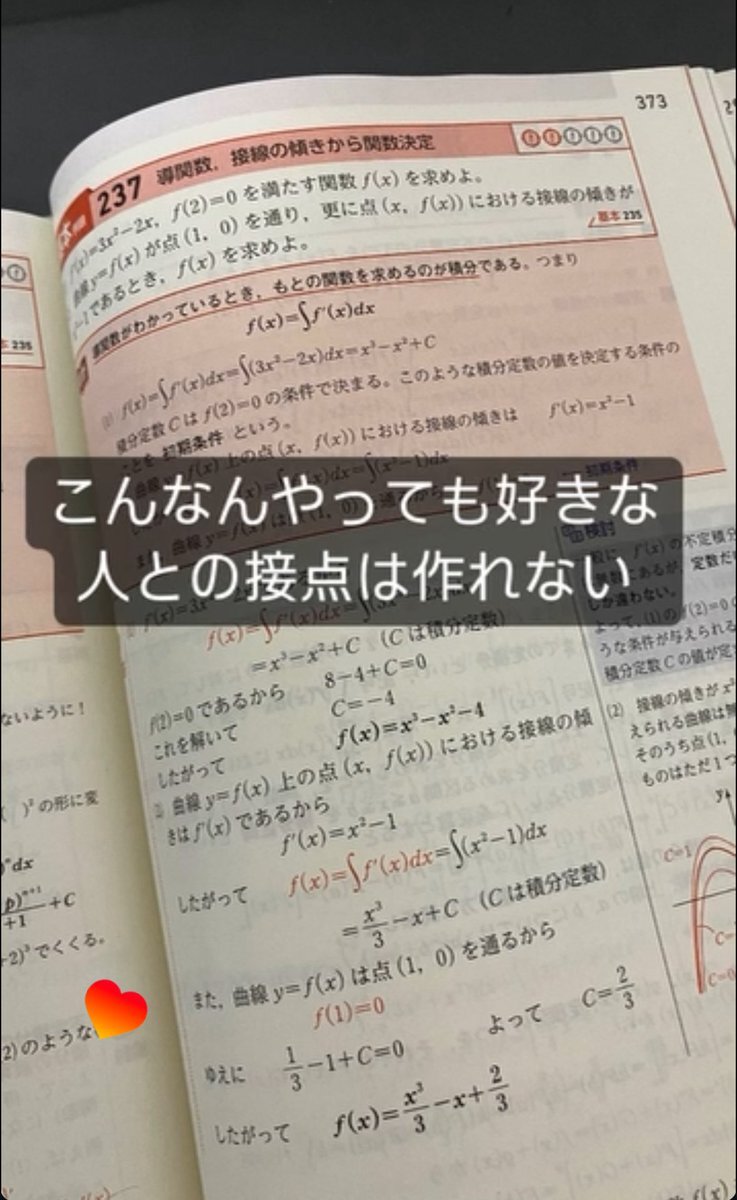 373
237 導関数,接線の傾きから関数決定
f'(x)=3x²-2x, f(2)=0 を満たす関数 f(x) を求めよ。
曲線 y=f(x) が点 (1, 0) を通り,更に点 (x, f(x)) における接線の傾きが
x²-1 であるとき, f(x) を求めよ。
基本 235
導関数がわかっているとき,もとの関数を求めるのが積分である。つまり
f(x)=∫f'(x)dx
f(x)=∫f'(x)dx=∫(3x²-2x)dx=x³-x²+C
積分定数 C は f(2)=0 の条件で決まる。このような積分定数の値を決定する条件の
ことを 初期条件 という。
曲線 y=f(x) 上の点 (x, f(x)) における接線の傾きは f'(x)=x²-1
こんなんやっても好きな
人との接点は作れない
検討
=x³-x²+C (C は積分定数)
f(2)=0 であるから 8-4+C=0
これを解いて C=-4
したがって f(x)=x³-x²-4
曲線 y=f(x) 上の点 (x, f(x)) における接線の傾
きは f'(x) であるから
f'(x)=x²-1
したがって f(x)=∫f'(x)dx=∫(x²-1)dx
=x³/3-x+C (C は積分定数)
また,曲線 y=f(x) は点 (1, 0) を通るから
f(1)=0
ゆえに 1/3-1+C=0 よって C=2/3
したがって f(x)=x³/3-x+2/3
f'(x) の不定積分
にあるが,定数だけ
しか違わない。
よって, (1) の f(2)=0 の
うな条件が与えられる
積分定数 C の値が定
(2) 接線の傾きが x²
えられる曲線は無
そのうち点 (1,
ものはただ1つ
y
C=1
C=0
235
ないように!
)² の形に変
dx
+C
+1
+2)³ でくくる。
2) のような